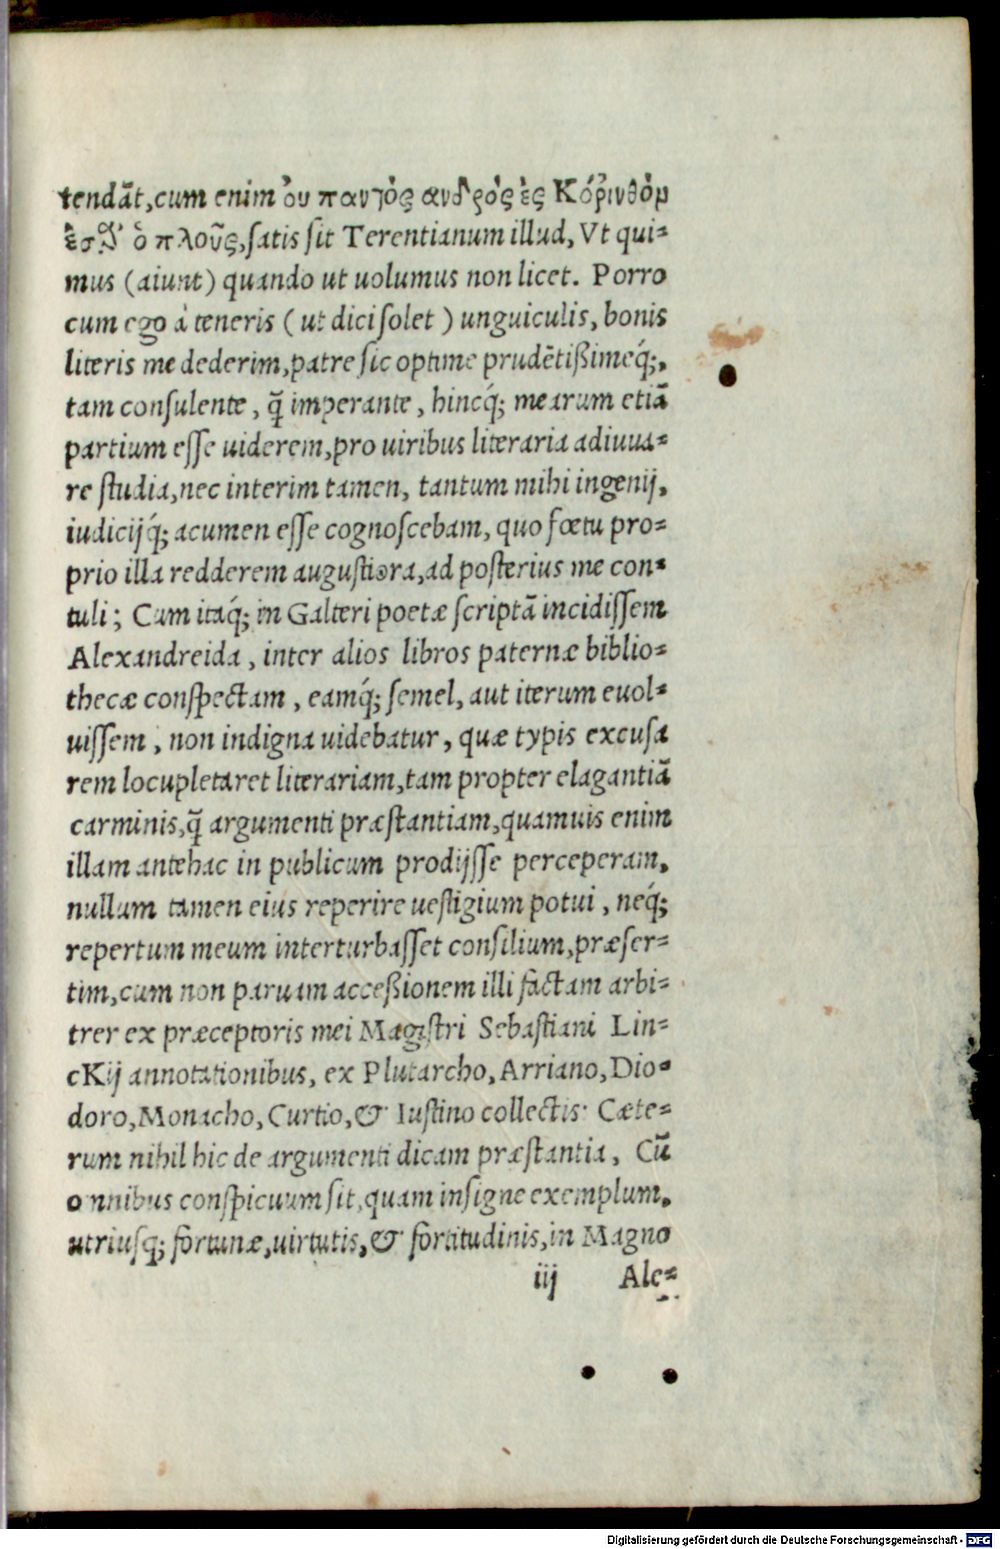 tendāt, cum enim ὀυ παντὸς ανδρὸς ἐς Κόρινθὸμ
ἐσθ' ὁ πλοῦς, ſatis ſit Terentianum illud, Vt qui⸗
mus (aiunt) quando ut uolumus non licet. Porro
cum ego à teneris (ut dici ſolet) unguiculis, bonis
literis me dederim, patre ſic optime prudētißimeq́;,
tam conſulente, q̄ imperante, hincq́; mearum etiā
partium eſſe uiderem, pro uiribus literaria adiuua⸗
re ſtudia, nec interim tamen, tantum mihi ingenij,
iudicijq́; acumen eſſe cognoſcebam, quo fœtu pro⸗
prio illa redderem auguſtiora, ad poſterius me con⸗
tuli; Cum itaq́; in Galteri poetæ ſcriptā incidiſſem
Alexandreida, inter alios libros paternæ biblio⸗
thecæ conſpectam, eamq́; ſemel, aut iterum euol⸗
uiſſem, non indigna uidebatur, quæ typis excuſa
rem locupletaret literariam, tam propter elagantiā
carminis, q̄ argumenti præſtantiam, quamuis enim
illam antehac in publicum prodijſſe perceperam,
nullum tamen eius reperire ueſtigium potui, neq́;
repertum meum interturbaſſet conſilium, præſer⸗
tim, cum non paruam acceßionem illi factam arbi⸗
trer ex præceptoris mei Magiſtri Sebaſtiani Lin⸗
cKij annotationibus, ex Plutarcho, Arriano, Dio⸗
doro, Monacho, Curtio, & Iuſtino collectis: Cæte⸗
rum nihil hic de argumenti dicam præſtantia, Cū
omnibus conſpicuum ſit, quam inſigne exemplum,
utriuſq; fortunæ, uirtutis, & fortitudinis, in Magno
iij Ale⸗
Digitalisierung gefördert durch die Deutsche Forschungsgemeinschaft - DFG